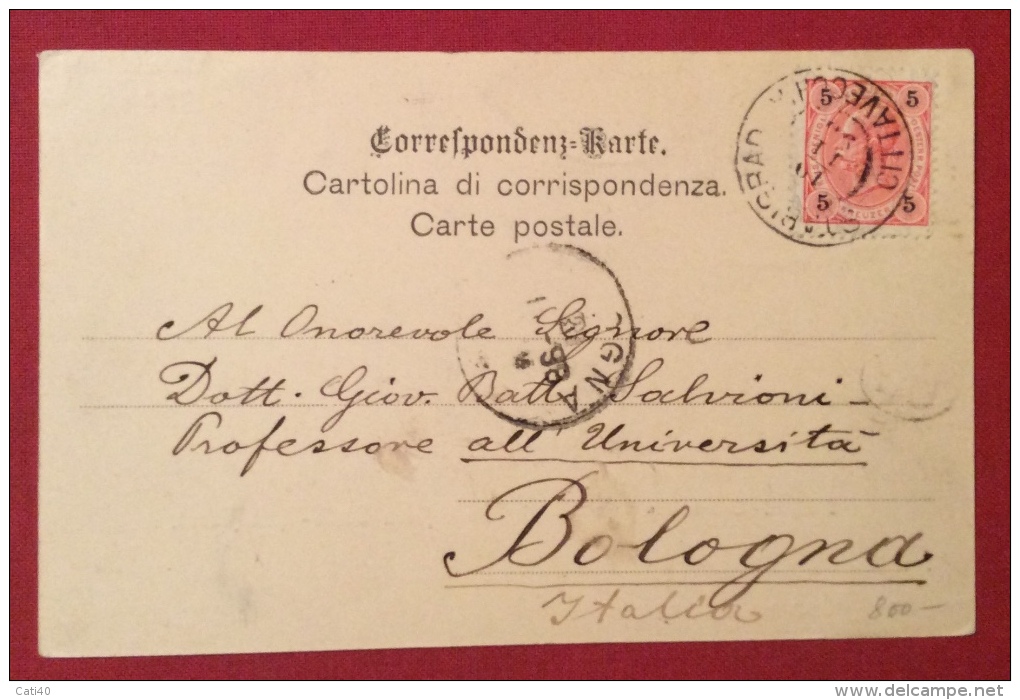 Correspondenz-Karte.
Cartolina di corrispondenza.
Carte postale.
5 5
5 KREUZER 5
CITTAVECCHIA
Al Onorevole Signore
Dott. Giov. Batt. Salvioni -
Professore all' Università
Bologna
Italia
800 -
OGNA
98
Cati40
delcampe.net